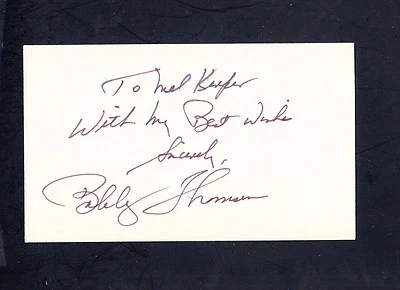 To Mel Keefer
With My Best Wishes
Sincerely,
Bobby Thomson